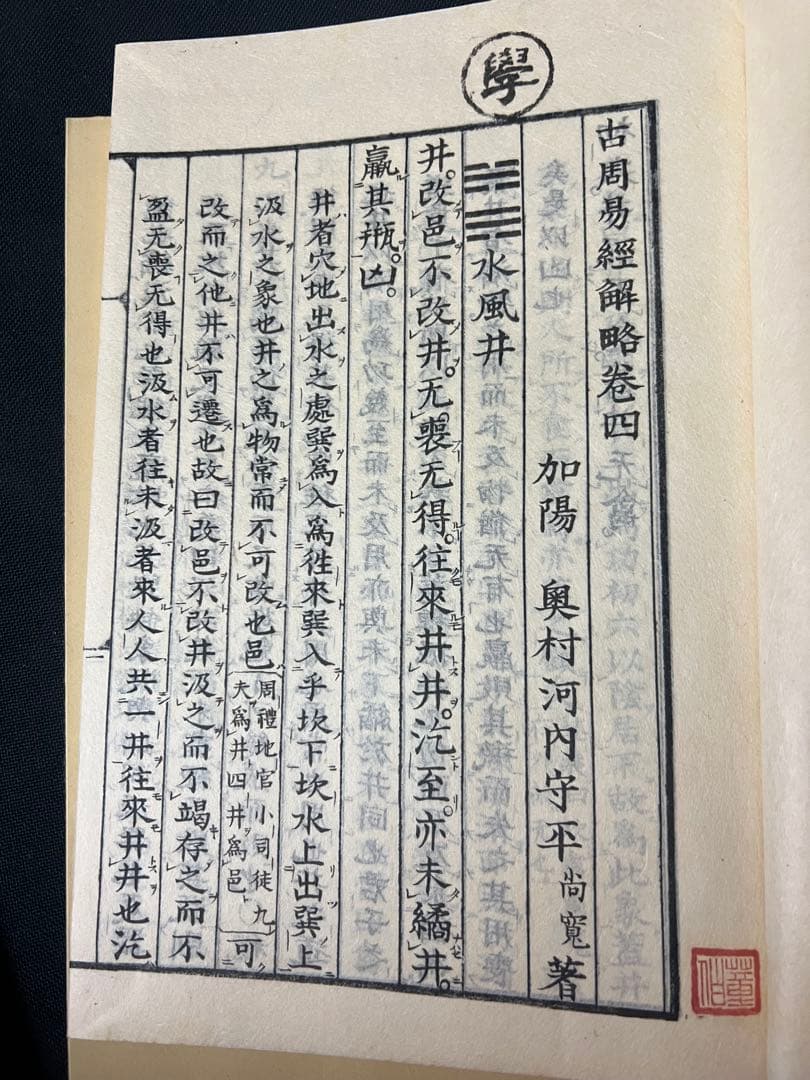 學
古周易經解略卷四
加陽 奧村河內守平尚寬著
䷯水風井
井。改邑不改井。无喪无得。往來井井。汔至。亦未繘井。
羸其瓶。凶。
井者穴地出水之處巽爲入爲徃來巽入乎坎下坎水上出巽上
汲水之象也井之爲物常而不可改也邑
周禮地官小司徒九
夫爲井四井爲邑
可
改而之他井不可遷也故曰改邑不改井汲之而不竭存之而不
盈无喪无得也汲水者往未汲者來人人共一井往來井井也汔